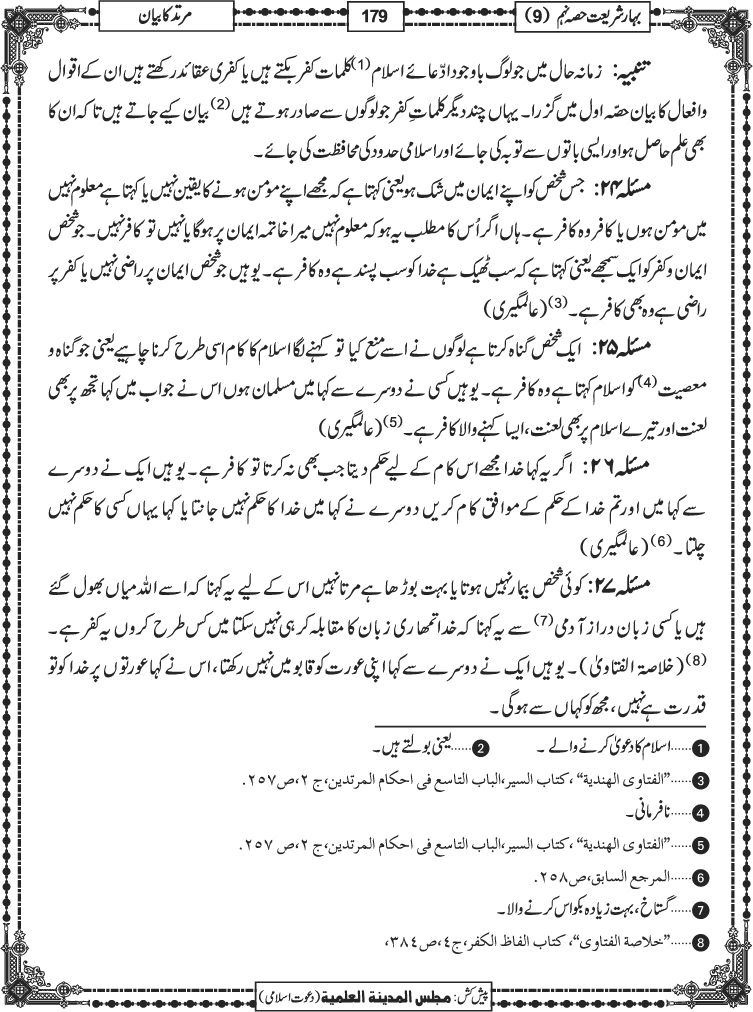 بہار شریعت حصہ نہم (9)
179
مرتد کا بیان
تنبیہ: زمانہ حال میں جو لوگ باوجود ادّعائے اسلام(1) کلمات کفر بکتے ہیں یا کفری عقائد رکھتے ہیں ان کے اقوال
و افعال کا بیان حصّہ اول میں گزرا۔ یہاں چند دیگر کلماتِ کفر جو لوگوں سے صادر ہوتے ہیں(2) بیان کیے جاتے ہیں تاکہ ان کا
بھی علم حاصل ہو اور ایسی باتوں سے توبہ کی جائے اور اسلامی حدود کی محافظت کی جائے۔
مسئلہ ۲۴: جس شخص کو اپنے ایمان میں شک ہو یعنی کہتا ہے کہ مجھے اپنے مؤمن ہونے کا یقین نہیں یا کہتا ہے معلوم نہیں
میں مومن ہوں یا کافر وہ کافر ہے۔ ہاں اگر اُس کا مطلب یہ ہو کہ معلوم نہیں میرا خاتمہ ایمان پر ہوگا یا نہیں تو کافر نہیں۔ جو شخص
ایمان و کفر کو ایک سمجھے یعنی کہتا ہے کہ سب ٹھیک ہے خدا کو سب پسند ہے وہ کافر ہے۔ یوہیں جو شخص ایمان پر راضی نہیں یا کفر پر
راضی ہے وہ بھی کافر ہے۔(3) (عالمگیری)
مسئلہ ۲۵: ایک شخص گناہ کرتا ہے لوگوں نے اسے منع کیا تو کہنے لگا اسلام کا کام اسی طرح کرنا چاہیے یعنی جو گناہ و
معصیت(4) کو اسلام کہتا ہے وہ کافر ہے۔ یوہیں کسی نے دوسرے سے کہا میں مسلمان ہوں اس نے جواب میں کہا تجھ پر بھی
لعنت اور تیرے اسلام پر بھی لعنت، ایسا کہنے والا کافر ہے۔(5) (عالمگیری)
مسئلہ ۲۶: اگر یہ کہا خدا مجھے اس کام کے لیے حکم دیتا جب بھی نہ کرتا تو کافر ہے۔ یوہیں ایک نے دوسرے
سے کہا میں اور تم خدا کے حکم کے موافق کام کریں دوسرے نے کہا میں خدا کا حکم نہیں جانتا یا کہا یہاں کسی کا حکم نہیں
چلتا۔(6) (عالمگیری)
مسئلہ ۲۷: کوئی شخص بیمار نہیں ہوتا یا بہت بوڑھا ہے مرتا نہیں اس کے لیے یہ کہنا کہ اسے اللہ میاں بھول گئے
ہیں یا کسی زبان دراز آدمی(7) سے یہ کہنا کہ خدا تمھاری زبان کا مقابلہ کر ہی نہیں سکتا میں کس طرح کروں یہ کفر ہے۔
(8) (خلاصۃ الفتاویٰ)۔ یوہیں ایک نے دوسرے سے کہا اپنی عورت کو قابو میں نہیں رکھتا، اس نے کہا عورتوں پر خدا کو تو
قدرت ہے نہیں، مجھ کو کہاں سے ہوگی۔
1 ......اسلام کا دعویٰ کرنے والے۔ 2 ......یعنی بولتے ہیں۔
3 ......"الفتاوی الهندیة"، کتاب السیر، الباب التاسع فی احکام المرتدین، ج ۲، ص ۲۵۷.
4 ......نافرمانی۔
5 ......"الفتاوی الهندیة"، کتاب السیر، الباب التاسع فی احکام المرتدین، ج ۲، ص ۲۵۷.
6 ......المرجع السابق، ص ۲۵۸.
7 ......گستاخ، بہت زیادہ بکواس کرنے والا۔
8 ......"خلاصة الفتاوی"، کتاب الفاظ الکفر، ج ٤، ص ۳۸٤،
پیش کش: مجلس المدینة العلمیة (دعوت اسلامی)